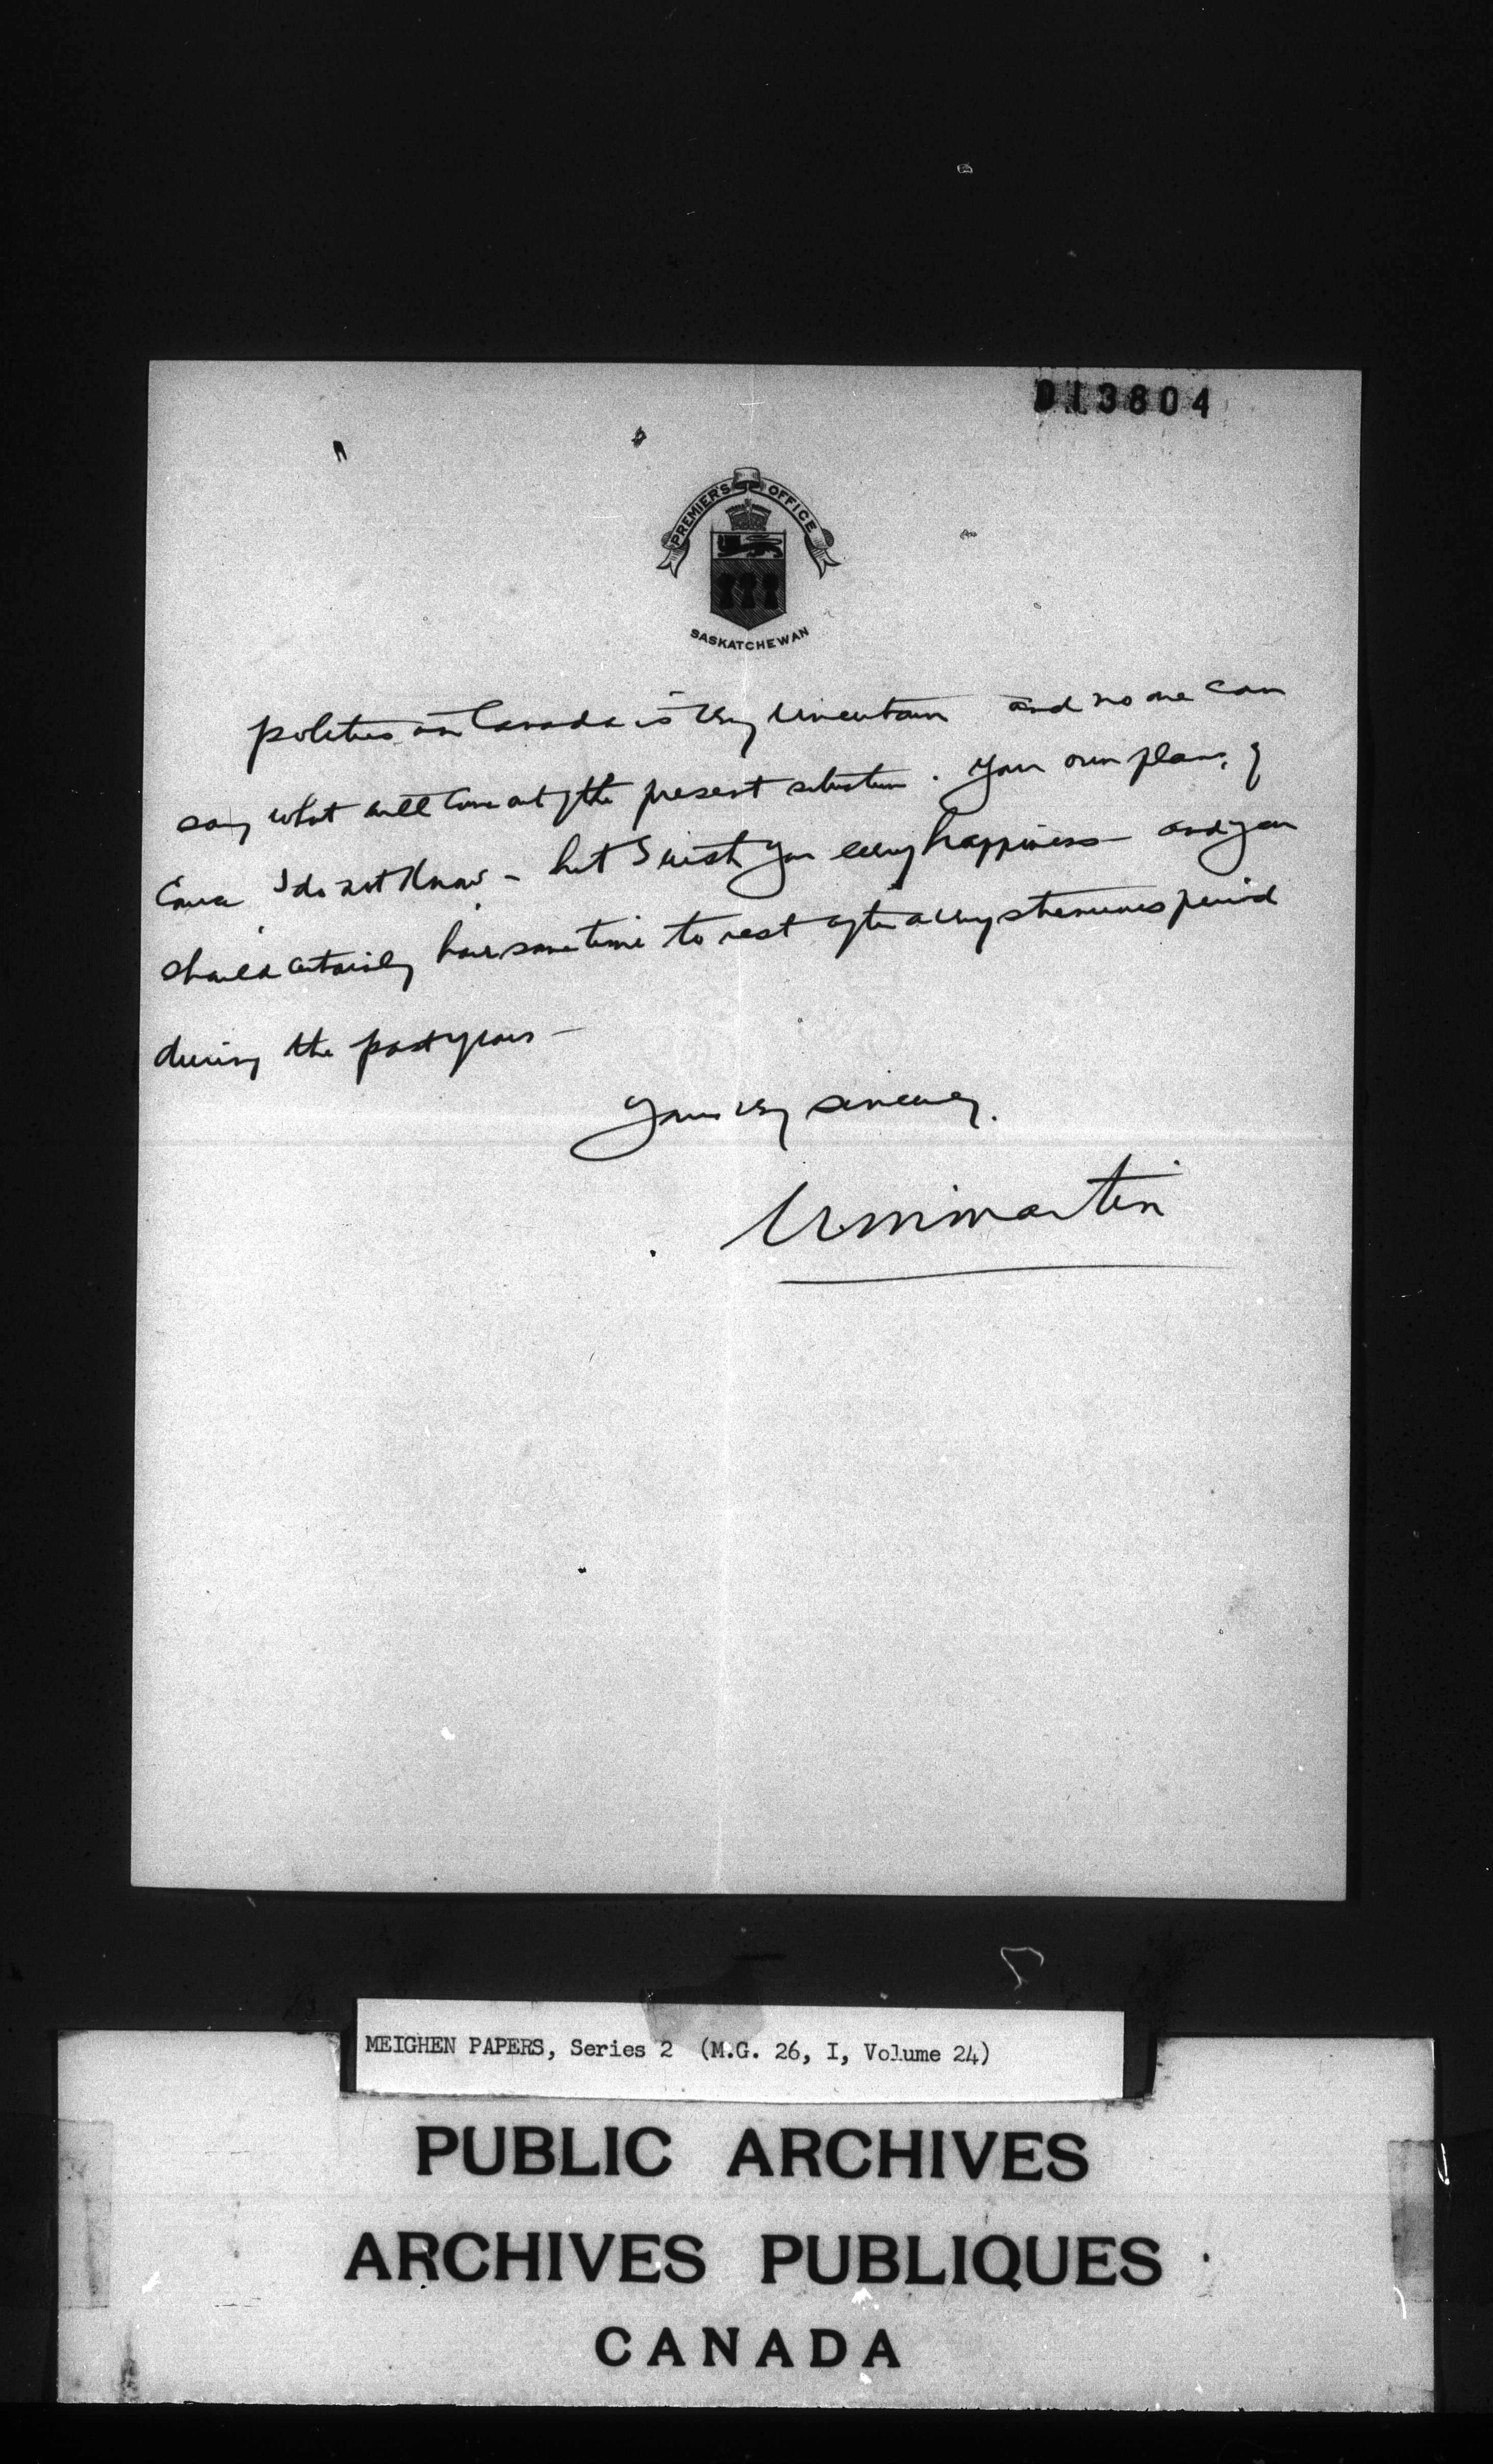 013804
PREMIER'S OFFICE
SASKATCHEWAN
politics in Canada is very uncertain and no one can
say what will come out of the present situation. Your own plans, of
course I do not know - but I wish you every happiness - and you
should certainly have some time to rest after a very strenuous period
during the past years -
Yours very sincerely.
W M Martin
MEIGHEN PAPERS, Series 2 (M.G. 26, I, Volume 24)
PUBLIC ARCHIVES
ARCHIVES PUBLIQUES
CANADA